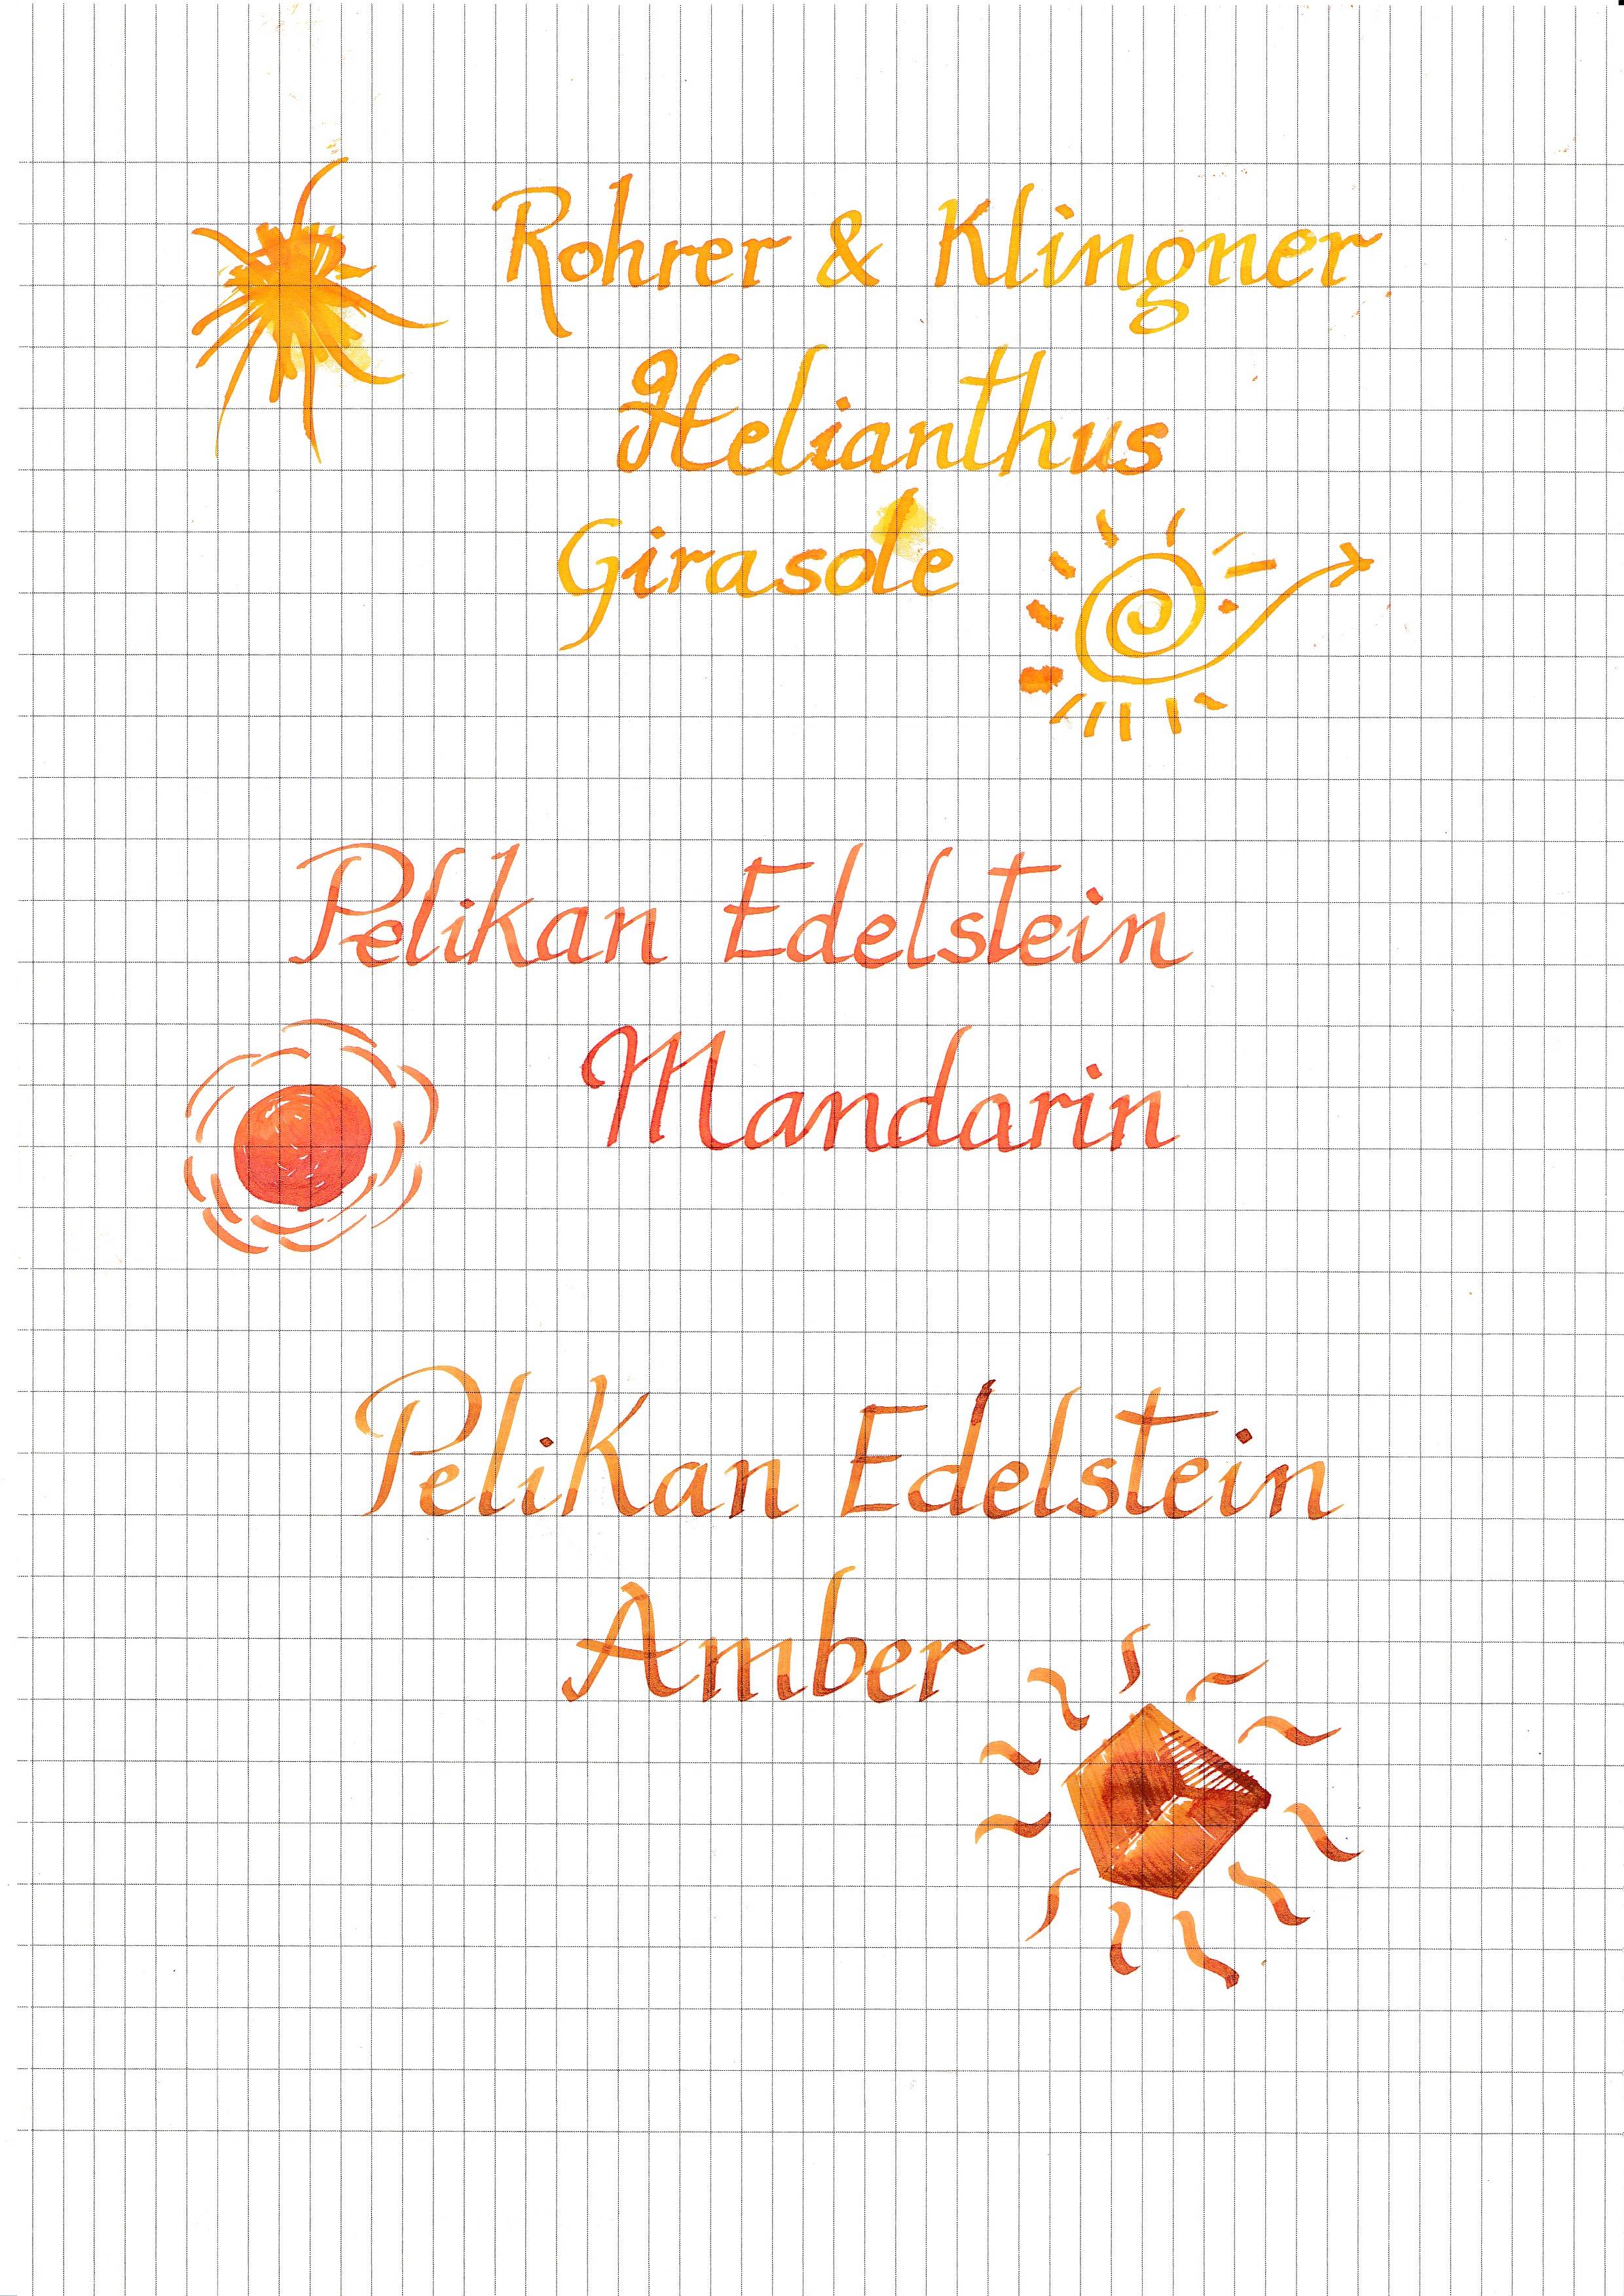 Rohrer & Klingner
Helianthus
Girasole
Pelikan Edelstein
Mandarin
Pelikan Edelstein
Amber